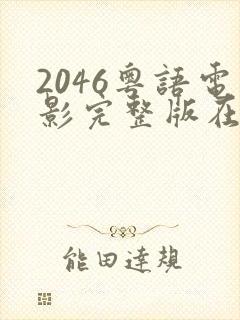 2046粵語電
影完整版在
能田達規